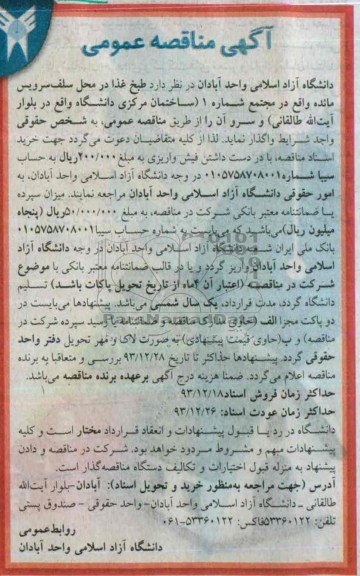 آگهی مناقصه عمومی
دانشگاه آزاد اسلامی واحد آبادان در نظر دارد طبخ غذا در محل سلف‌سرویس
مائده واقع در مجتمع شماره ۱ (ساختمان مرکزی دانشگاه واقع در بلوار
آیت‌الله طالقانی) و سرو آن را از طریق مناقصه عمومی، به شخص حقوقی
واجد شرایط واگذار نماید. لذا از کلیه متقاضیان دعوت می‌گردد جهت خرید
اسناد مناقصه، با در دست داشتن فیش واریزی به مبلغ ۲۰۰/۰۰۰ ریال به حساب
سیبا شماره ۰۱۰۵۷۵۸۷۰۸۰۰۱ در وجه دانشگاه آزاد اسلامی واحد آبادان، به
امور حقوقی دانشگاه آزاد اسلامی واحد آبادان مراجعه نمایند. میزان سپرده
یا ضمانتنامه معتبر بانکی شرکت در مناقصه، به مبلغ ۵۰/۰۰۰/۰۰۰ ریال (پنجاه
میلیون ریال) می‌باشد که می‌بایست به شماره حساب سیبا ۰۱۰۵۷۵۸۷۰۸۰۰۱
بانک ملی ایران شعبه دانشگاه آزاد اسلامی واحد آبادان در وجه دانشگاه آزاد
اسلامی واحد آبادان واریز گردد و یا در قالب ضمانتنامه معتبر بانکی با موضوع
شرکت در مناقصه (اعتبار آن ۴ماه از تاریخ تحویل پاکات باشد) تسلیم
دانشگاه گردد. مدت قرارداد، یک سال شمسی می‌باشد. پیشنهادها می‌بایست در
دو پاکت مجزا الف (حاوی مدارک مناقصه و ضمانتنامه یا رسید سپرده شرکت در
مناقصه) و ب(حاوی قیمت پیشنهادی) به صورت لاک و مهر تحویل دفتر واحد
حقوقی گردد. پیشنهادها حداکثر تا تاریخ ۹۳/۱۲/۲۸ بررسی و متعاقبا به برنده
مناقصه اعلام می‌گردد. ضمنا هزینه درج آگهی برعهده برنده مناقصه می‌باشد.
حداکثر زمان فروش اسناد: ۹۳/۱۲/۱۸
حداکثر زمان عودت اسناد: ۹۳/۱۲/۲۶
دانشگاه در رد یا قبول پیشنهادات و انعقاد قرارداد مختار است و کلیه
پیشنهادات مبهم و مشروط مردود خواهد بود. شرکت در مناقصه و دادن
پیشنهاد به منزله قبول اختیارات و تکالیف دستگاه مناقصه‌گذار است.
آدرس (جهت مراجعه به‌منظور خرید و تحویل اسناد): آبادان-بلوار آیت‌الله
طالقانی - دانشگاه آزاد اسلامی واحد آبادان- واحد حقوقی - صندوق پستی
تلفن: ۵۳۳۶۰۱۲۲ فاکس: ۵۳۳۶۰۱۲۲-۰۶۱
روابط عمومی
دانشگاه آزاد اسلامی واحد آبادان